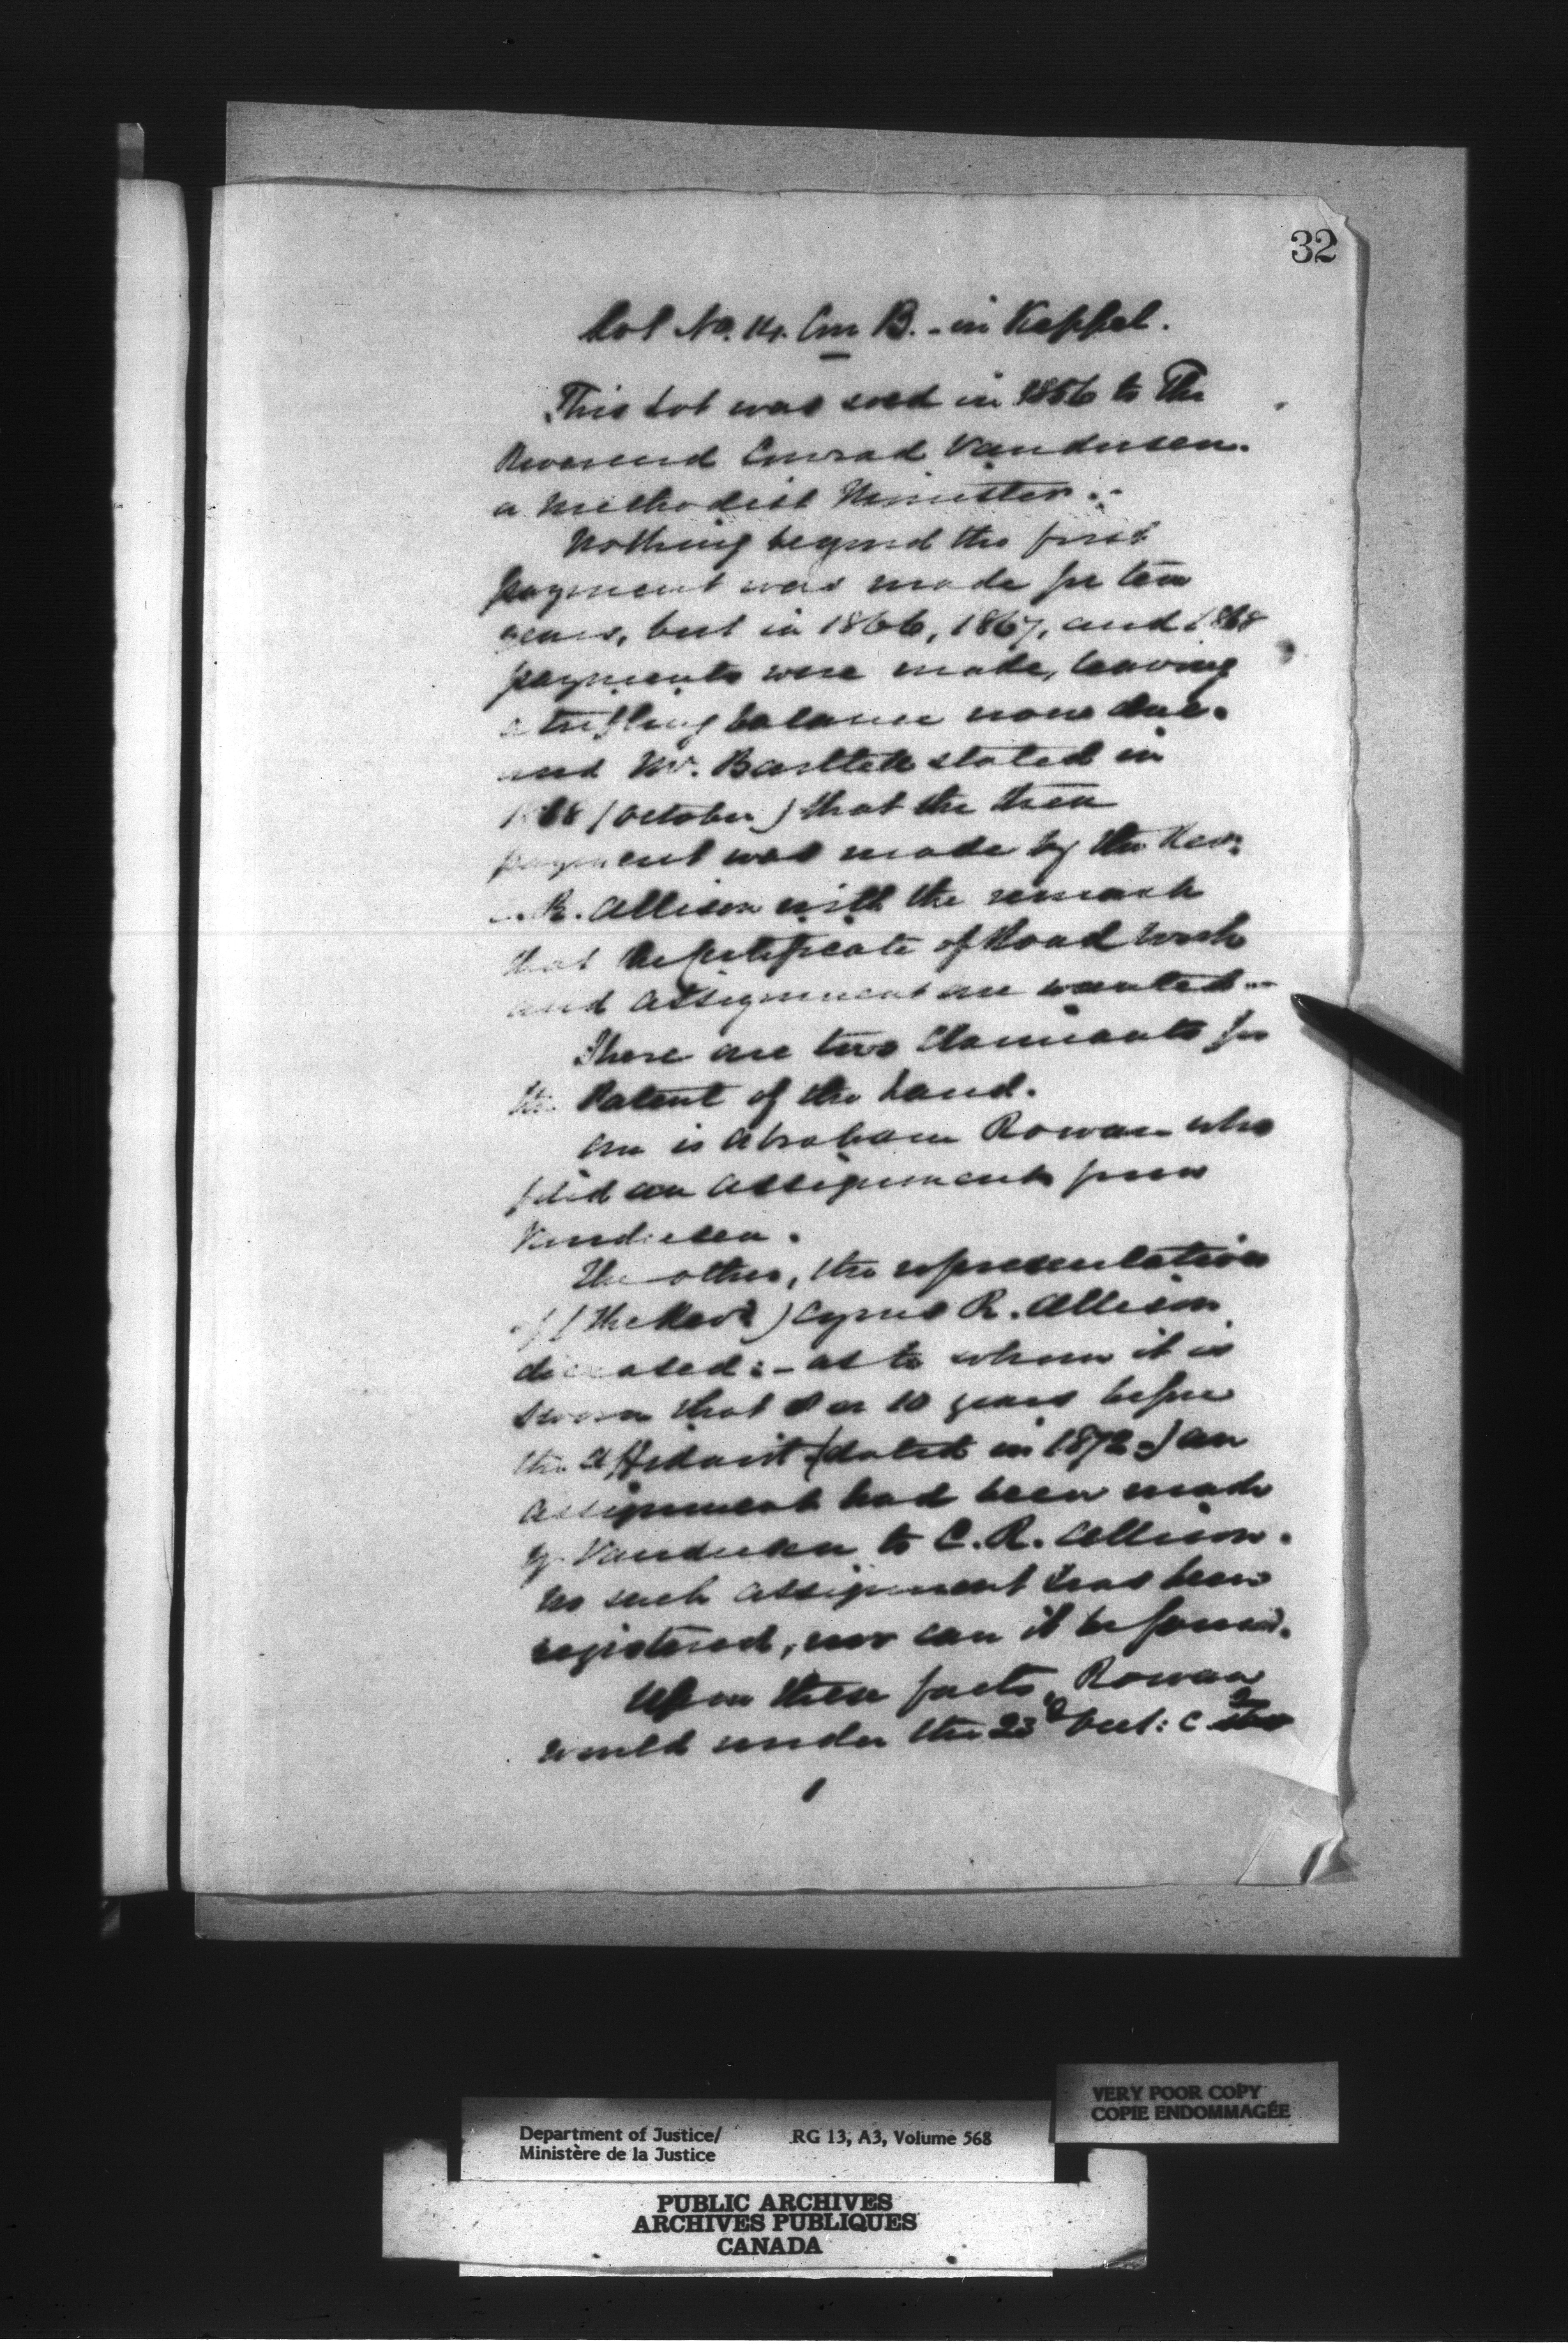 32
Lot No. 14. Con B. - in Keppel.
This Lot was sold in 1856 to The
Reverend Conrad Vandusen.
a Methodist Minister.-
Nothing beyond the first
payment was made for ten
years, but in 1866, 1867, and 1868
payments were made, leaving
a trifling balance now due.
and Mr. Bartlett stated in
1868 (October) that the then
payment was made by the Revd.
C. R. Allison with the remark
that the Certificate of Road Work
and assignment are wanted -
There are two Claimants for
the Patent of the Land.
One is Abraham Rowan who
filed an assignment from
Vandusen.
The other, the representation
of (the Revd) Cyrus R. Allison
deceased: - as to whom it is
sworn that 8 or 10 years before
the Affidavit (dated in 1872.) an
assignment had been made
by Vandusen to C. R. Allison.
No such assignment has been
registered, nor can it be found.
Upon these facts, Rowan
would under the 23d Vict: C. 2
1
VERY POOR COPY
COPIE ENDOMMAGÉE
Department of Justice/ RG 13, A3, Volume 568
Ministère de la Justice
PUBLIC ARCHIVES
ARCHIVES PUBLIQUES
CANADA